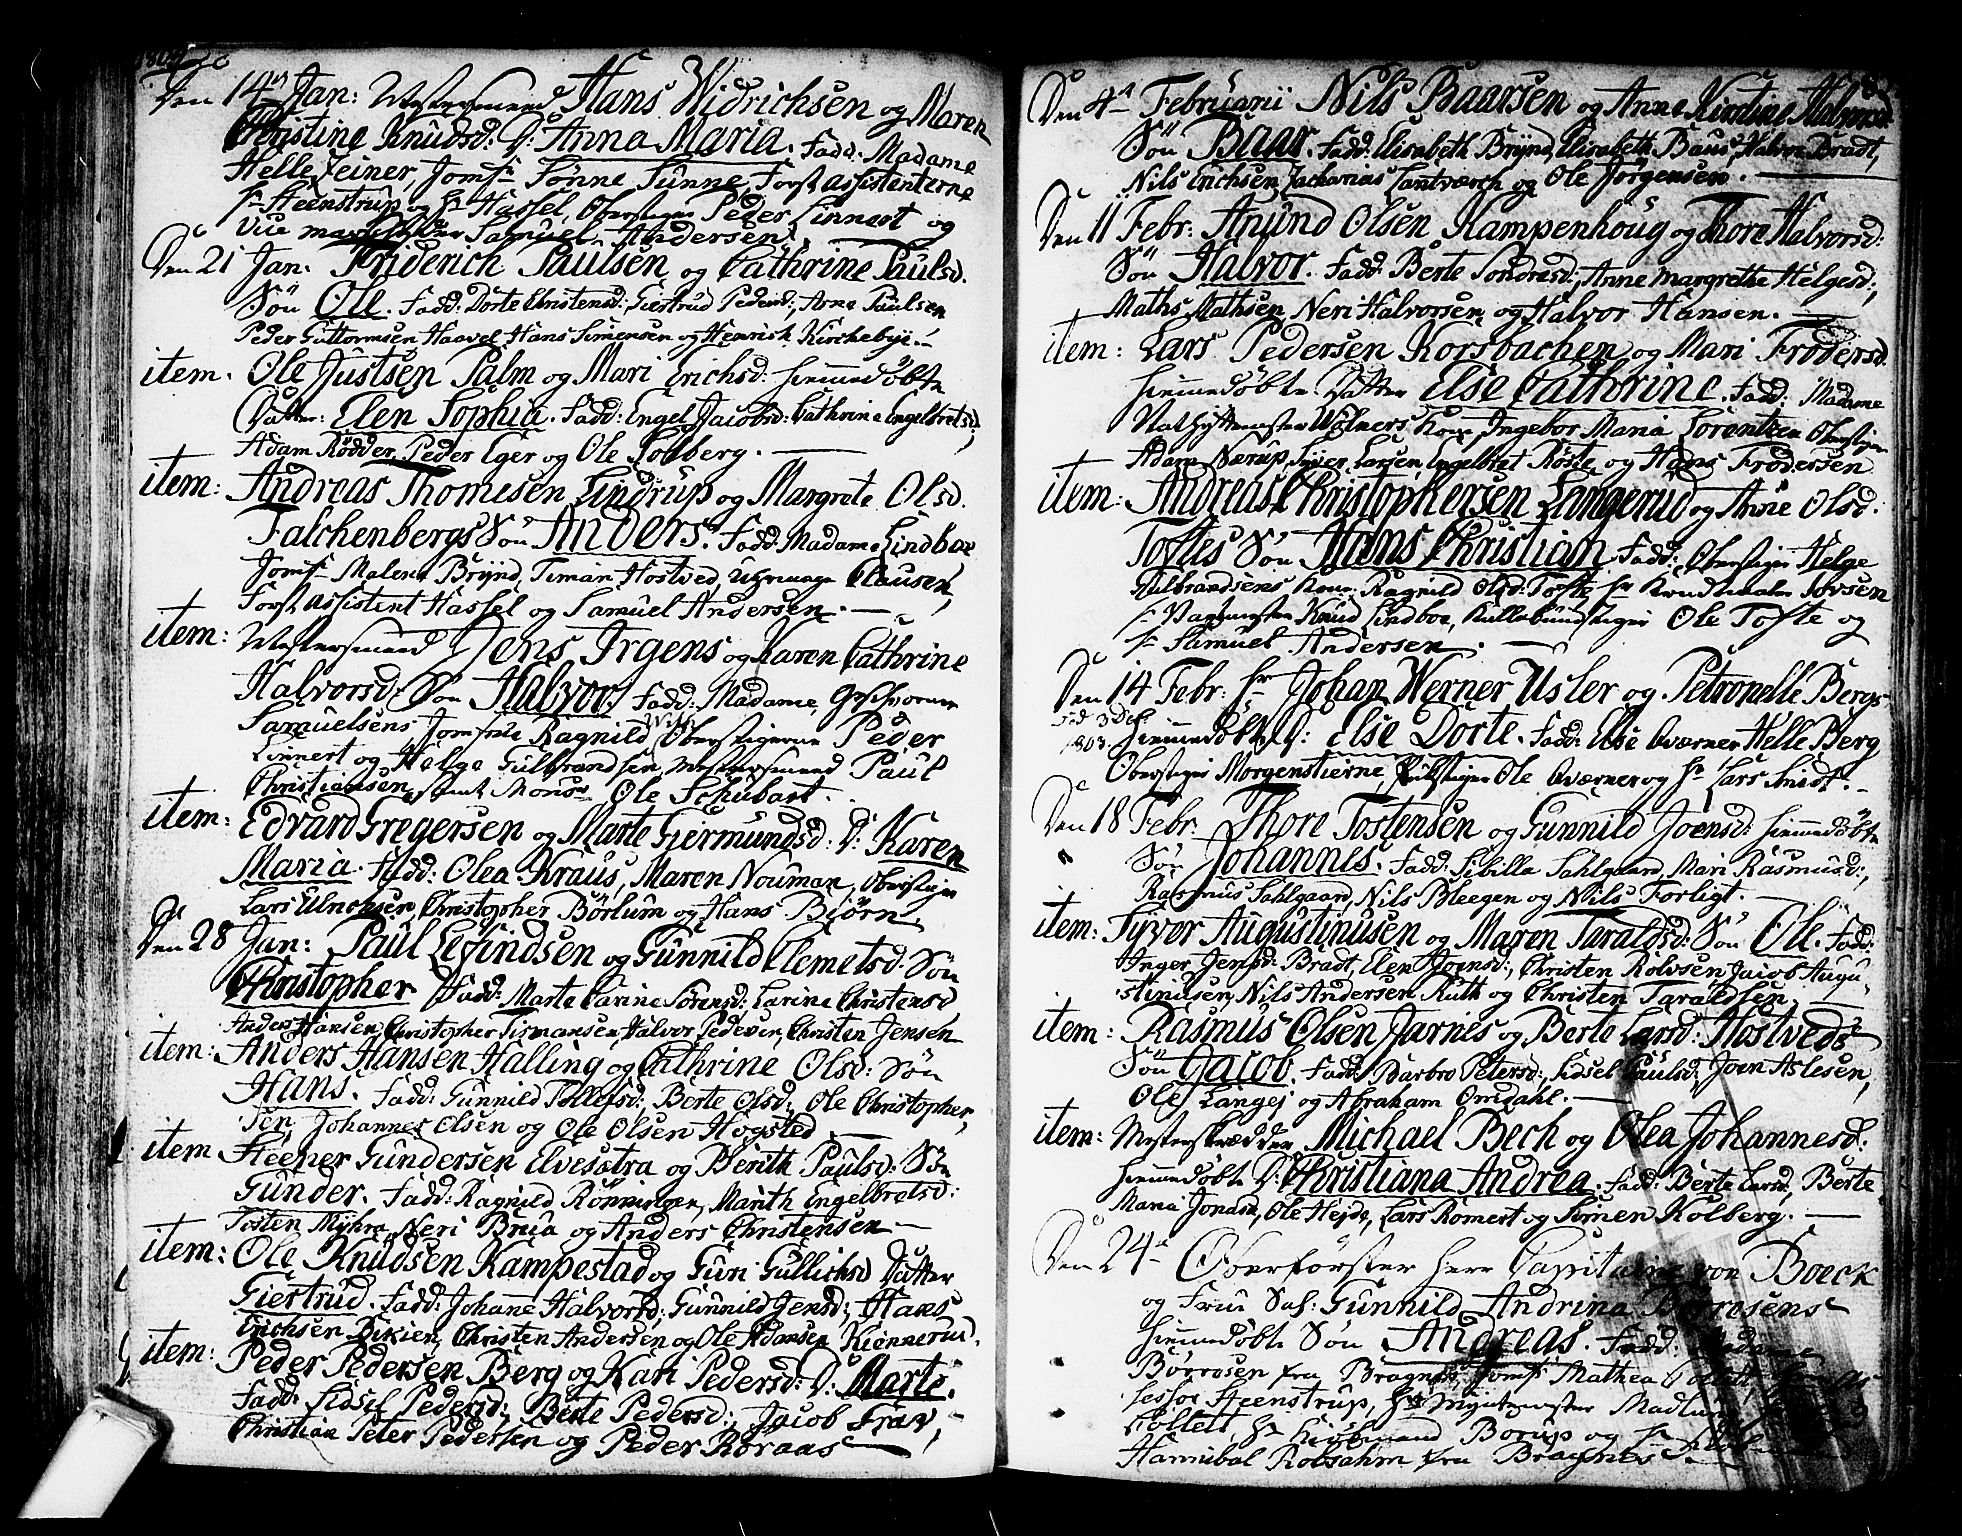 1804
Den 14de Jan: Mestersmed Hans Widrichsen og Maren
Christine Knudsd. D: Anna Maria. Fadd: Madame
Helle Zeiner, Jomf: Sønne Sunne, Forstassistenterne
Hr Steenstrup og Hr Hassel, Oberstiger Peder Linnert og
Samuel Andersen.
Den 21 Jan. Friderich Paulsen og Cathrine Paulsd.
Søn Ole. Fadd: Dorte Christensd:, Giertrud Pedersd:, Arne Paulsen
Peder Guttormsen Haavel, Hans Simensen og Henrich Kirchebye.
item. Ole Justsen Palm og Mari Erichsd: hiemmedøbte
Datter: Elen Sophia. Fadd: Engel Jacobsd: Cathrine Engelbretsd:,
Adam Rødder, Peder Eger og Ole Solberg.
item: Andreas Thomesen Lindrup og Margrete Olsd.
Falchenbergs Søn Anders. Fadd: Madame Lindboe
Jomf: Malene Brynd, Timan Hostved, Clausen,
Forstassistent Hassel og Samuel Andersen.
item: Mestersmed Jens Irgens og Karen Cathrine
Halvorsd: Søn Halvor. Fadd: Madame Geschworner
Samuelsens, Jomfrue Ragnild With Oberstigerne Peder
Linnert og Helge Gulbrandsen, Mestersmed Paul
Christiansen, Ole Schubart.
item: Edvard Gregersen og Marte Giermundsd: D: Karen
Maria. Fadd: Olea Kraus, Maren Nouman, Oberstiger
Lars Ulrichsen, Christopher Børlum og Hans Bjørn.
Den 28 Jan: Paul Lefindsen og Gunnild Clemetsd: Søn
Christopher. Fadd: Marte Carine Sørensd: Larine Christensd
Anders Hansen, Christopher Tismansen, Halvor Pedersen, Christen Jensen
item: Anders Hansen Halling og Cathrine Olsd: Søn
Hans. Fadd: Gunnild Tollefsd: Berte Olsd:, Ole Christopher,
sen, Johannes Elsen og Ole Olsen Hogsted
item Steener Gundersen Elvesætra og Berith Paulsd: Søn
Gunder. Fadd: Ragnild Rønningen, Marith Engelbretsd:
Tosten Myhra, Neri Brua og Anders Christensen
item: Ole Knudsen Kampestad og Guri Gullichsd Datter
Giertrud. Fadd: Johanne Halvorsd:, Gunnild Jensd:, Hans
Erichsen, Christen Andersen og Ole Adamsen Kiennerud.
item: Peder Pedersen Berg og Kari Pedersd: D: Marte.
Fadd: Sidsel Pedersd: Berte Pedersd:, Jacob
Christian Peter Pedersen og Peder Roraas
Den 4de Februarii Nils Baarsen og Anne Kirstine Halvorsd.
Søn Baar. Fadd: Elisabeth Brynd, Elisabeth Baus, Halvor Bradt,
Nils Erichsen, Zacharias Santværch og Ole Jørgensen.
Den 11 Febr: Anund Olsen Kampenhoug og Thore Halvorsd:
Søn Halvor. Fadd: Berte Sondresd:, Anne Margrethe Helgesd:,
Maths Mathsen, Neri Halvorsen, og Halvor Hansen.
item: Lars Pedersen Korsbachen og Mari Frodersd.
hiemmedøbte Datter Else Cathrine. Fadd: Madame
Wølners Kone, Ingebor Maria Lorentzen Oberstiger
Adam Nærup, Syver Larsen, Engelbret Røste og Hans Frodersen
item: Andreas Christophersen Langerud og Anne Olsd.
Toftes Søn Hans Christian. Fadd: Oberstiger Helge
Gulbrandsens Kone, Ragnild Olsd: Tofte, Hr Iversen
Hr Knud Lindboe, Ole Tofte og
Hr Samuel Andersen.
Den 14 Febr: Hr Johan Werner Usler og Petronelle Bergs
Fød 3 Dec: 1803. hiemmedøbte D: Else Dorte. Fadd: Else Qværner Helle Berg
Oberstiger Morgenstierne, Ole Qværner og Hr Lars Smidt.
Den 18 Febr. Thore Tostensen og Gunnild Joensd: hiemmedøbte
Søn Johannes. Fadd: Sibilla Sahlgaard, Mari Rasmusd:,
Rasmus Sahlgaard, Nils Bleegen og Nils Forligt.
item: Syver Augustinusen og Maren Taraldsd: Søn Ole. Fadd:
Inger Jensd: Bradt, Elen Joensd:, Christen Rolvsen, Jacob Augu,
stinusen, Nils Andersen Ruth og Christen Taraldsen.
item: Rasmus Olsen Jarnes og Berte Larsd: Hostveds
Søn Jacob. Fadd: Barbro Petersd:, Sidsel Paulsd:, Joen Aslesen,
Ole Langej og Abraham Omdahl.
item: Mesterskrædder Michael Bech og Olea Johannesd:
hiemmedøbte D: Christiana Andrea. Fadd: Berte Larsd:, Berte
Maria Jonasd:, Ole Hejde, Lars Romert og Simen Kolberg.
Den 24de Oberförster Herr Capitaine von Boeck
og Frue Sal: Gunnild Andrina Børresens
hiemmedøbte Søn Andreas. Fadd: Madame
Børresen fra Bragnes, Jomf: Mathea Collett,
Steenstrup, Hr Myntmester Madlung
Collett, Hr Kiøbmand Borup og Hr
Hannibal Kolsahm fra Bragnes